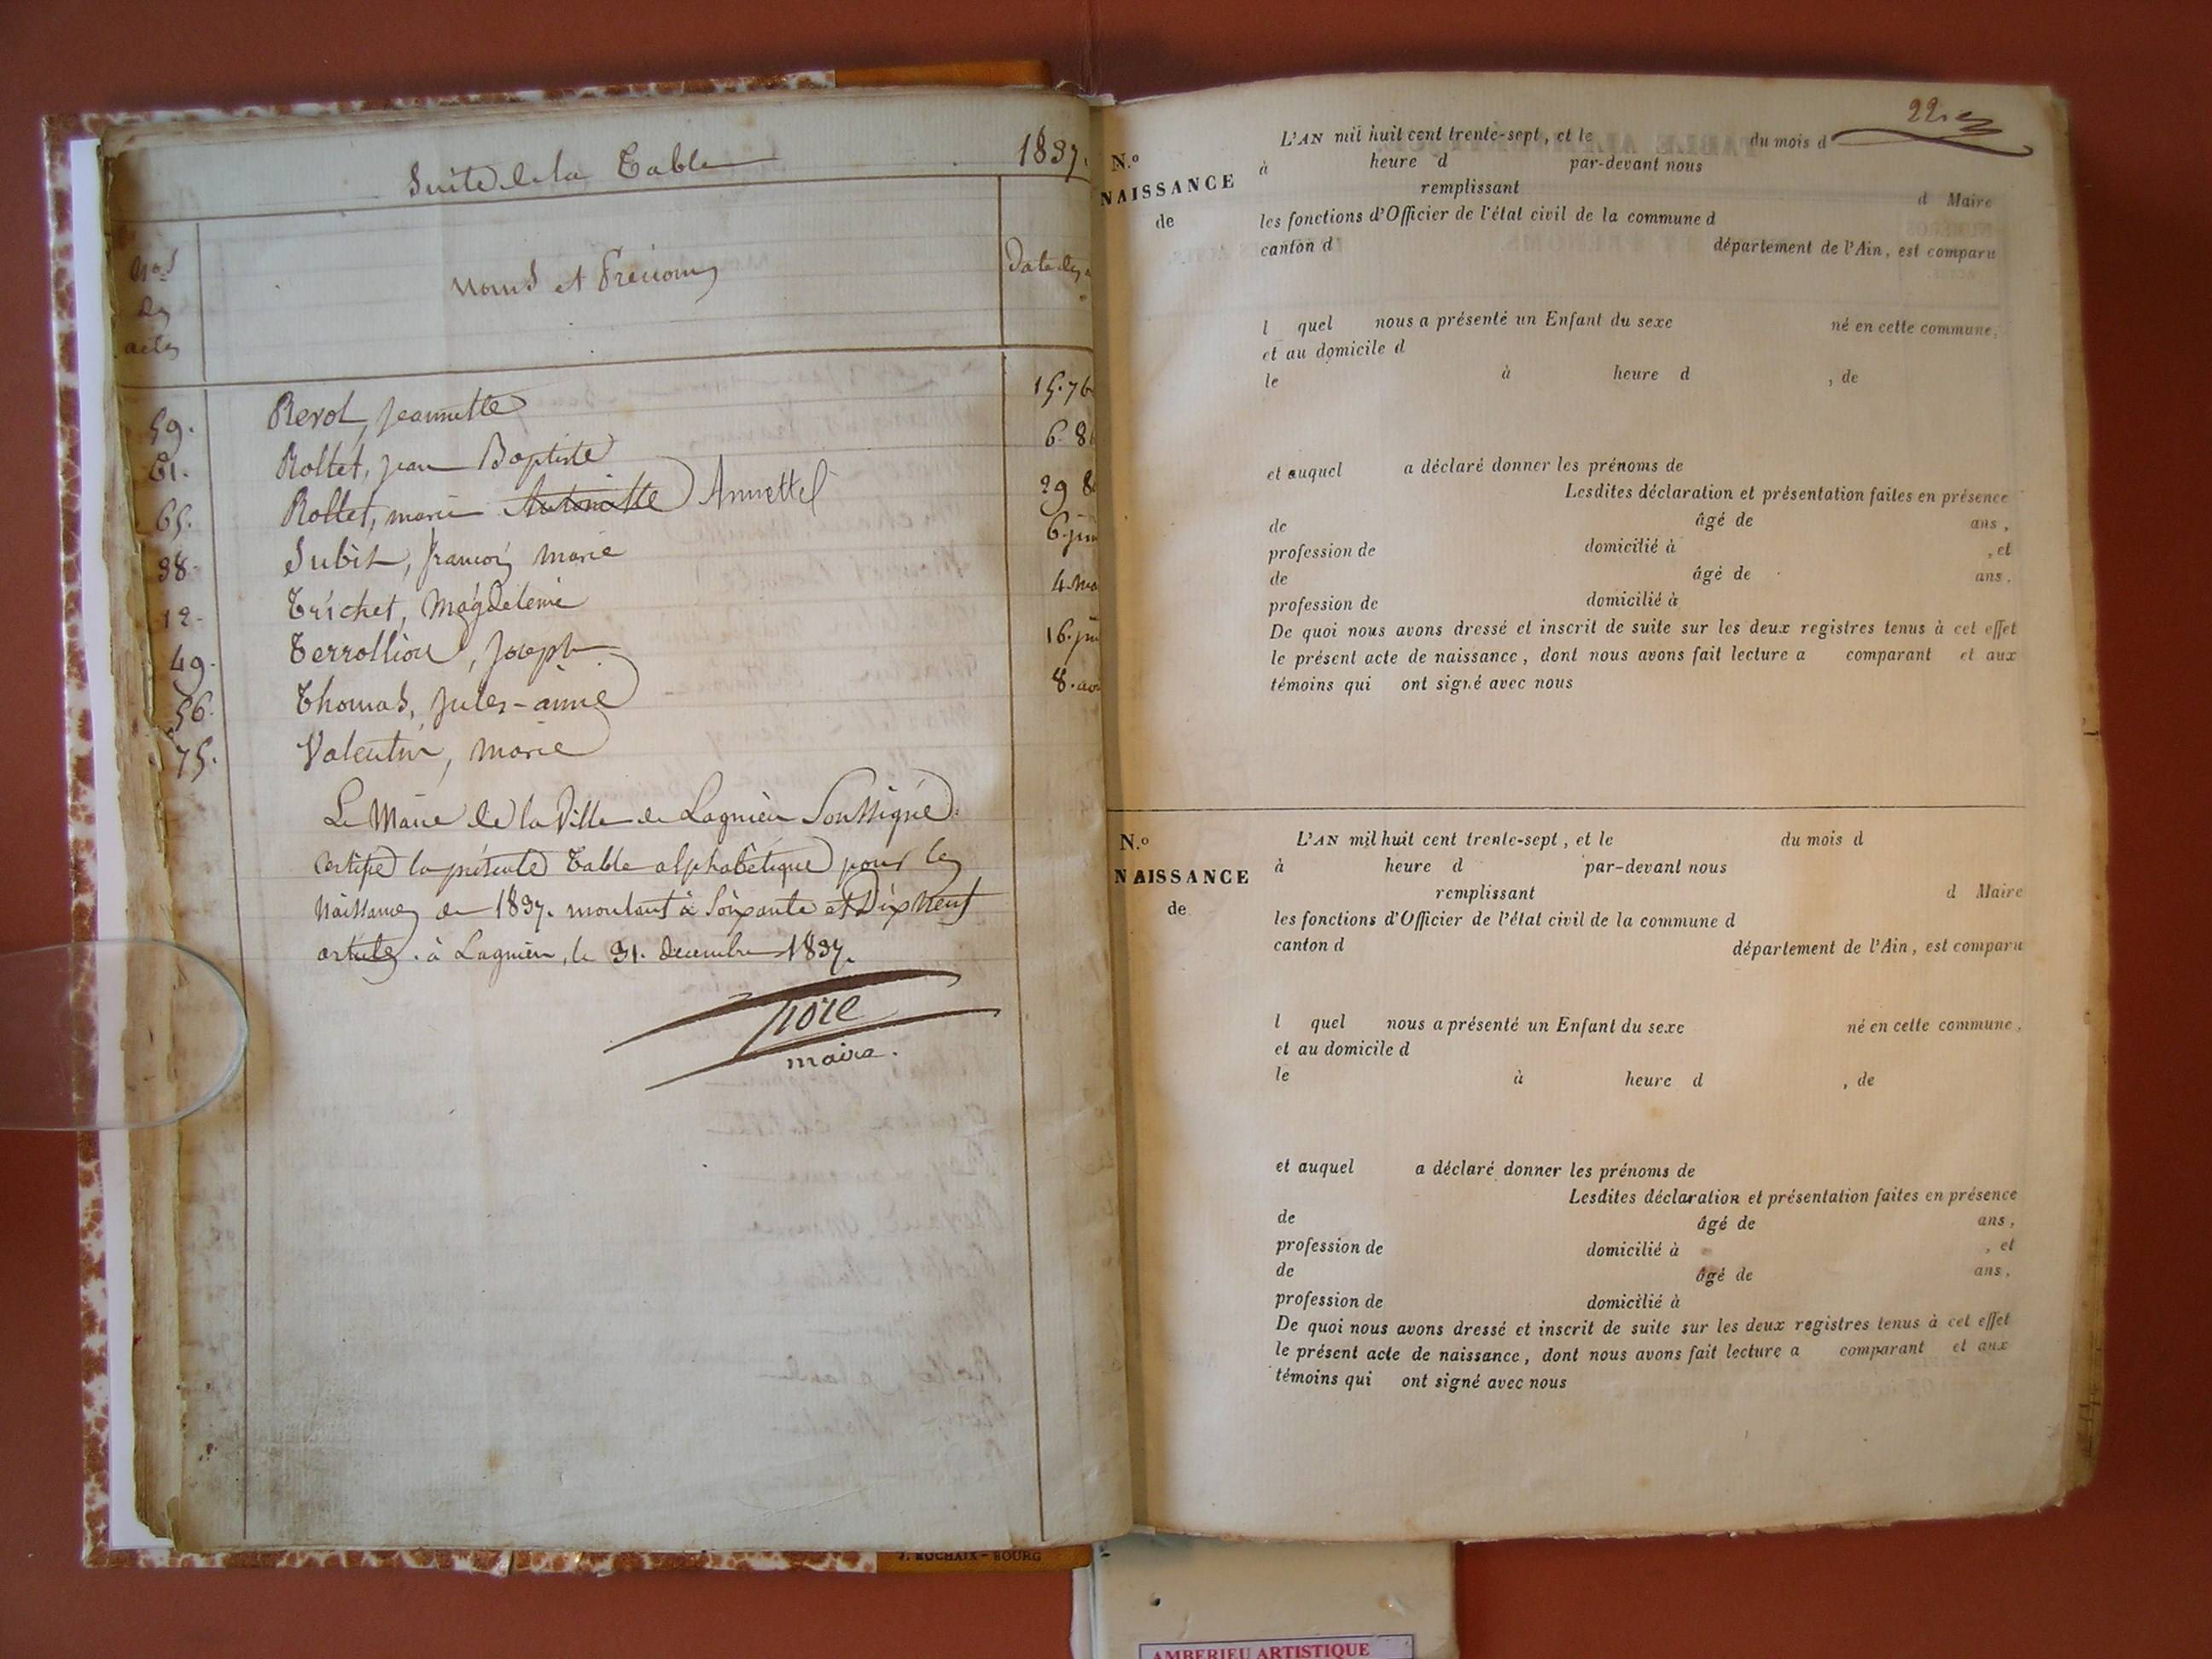 Suite de la Table 1837.
Nos des actes
Noms et Prénoms
Date des
59. Revol, Jeannette 15. 7b
61. Roltet, jean Baptiste 6. 8b
65. Roltet, marie Antoinette Annette 29 8
38. Subit, françois marie 6. jui
12. Trichet, Magdeleine 4. Ma
49. Terrollion, Joseph 16. jui
56. Thomas, jules-aimé 8. ao
75. Valentin, marie
Le Maire de la Ville de Lagnieu Soussigné
Certifie la présente Table alphabétique pour les
Naissances de 1837. montant à Soixante et Dix Neuf
articles. à Lagnieu, le 31. decembre 1837.
maire.
J. ROCHAIX - BOURG
22
N.º
NAISSANCE
de
L'AN mil huit cent trente-sept, et le du mois d
à heure d par-devant nous
remplissant d Maire
les fonctions d'Officier de l'état civil de la commune d
canton d département de l'Ain, est comparu
l quel nous a présenté un Enfant du sexe né en cette commune,
et au domicile d
le à heure d , de
et auquel a déclaré donner les prénoms de
Lesdites déclaration et présentation faites en présence
de âgé de ans,
profession de domicilié à , et
de âgé de ans,
profession de domicilié à
De quoi nous avons dressé et inscrit de suite sur les deux registres tenus à cet effet
le présent acte de naissance, dont nous avons fait lecture a comparant et aux
témoins qui ont signé avec nous
N.º
NAISSANCE
de
L'AN mil huit cent trente-sept, et le du mois d
à heure d par-devant nous
remplissant d Maire
les fonctions d'Officier de l'état civil de la commune d
canton d département de l'Ain, est comparu
l quel nous a présenté un Enfant du sexe né en cette commune,
et au domicile d
le à heure d , de
et auquel a déclaré donner les prénoms de
Lesdites déclaration et présentation faites en présence
de âgé de ans,
profession de domicilié à , et
de âgé de ans,
profession de domicilié à
De quoi nous avons dressé et inscrit de suite sur les deux registres tenus à cet effet
le présent acte de naissance, dont nous avons fait lecture a comparant et aux
témoins qui ont signé avec nous
AMBERIEU ARTISTIQUE